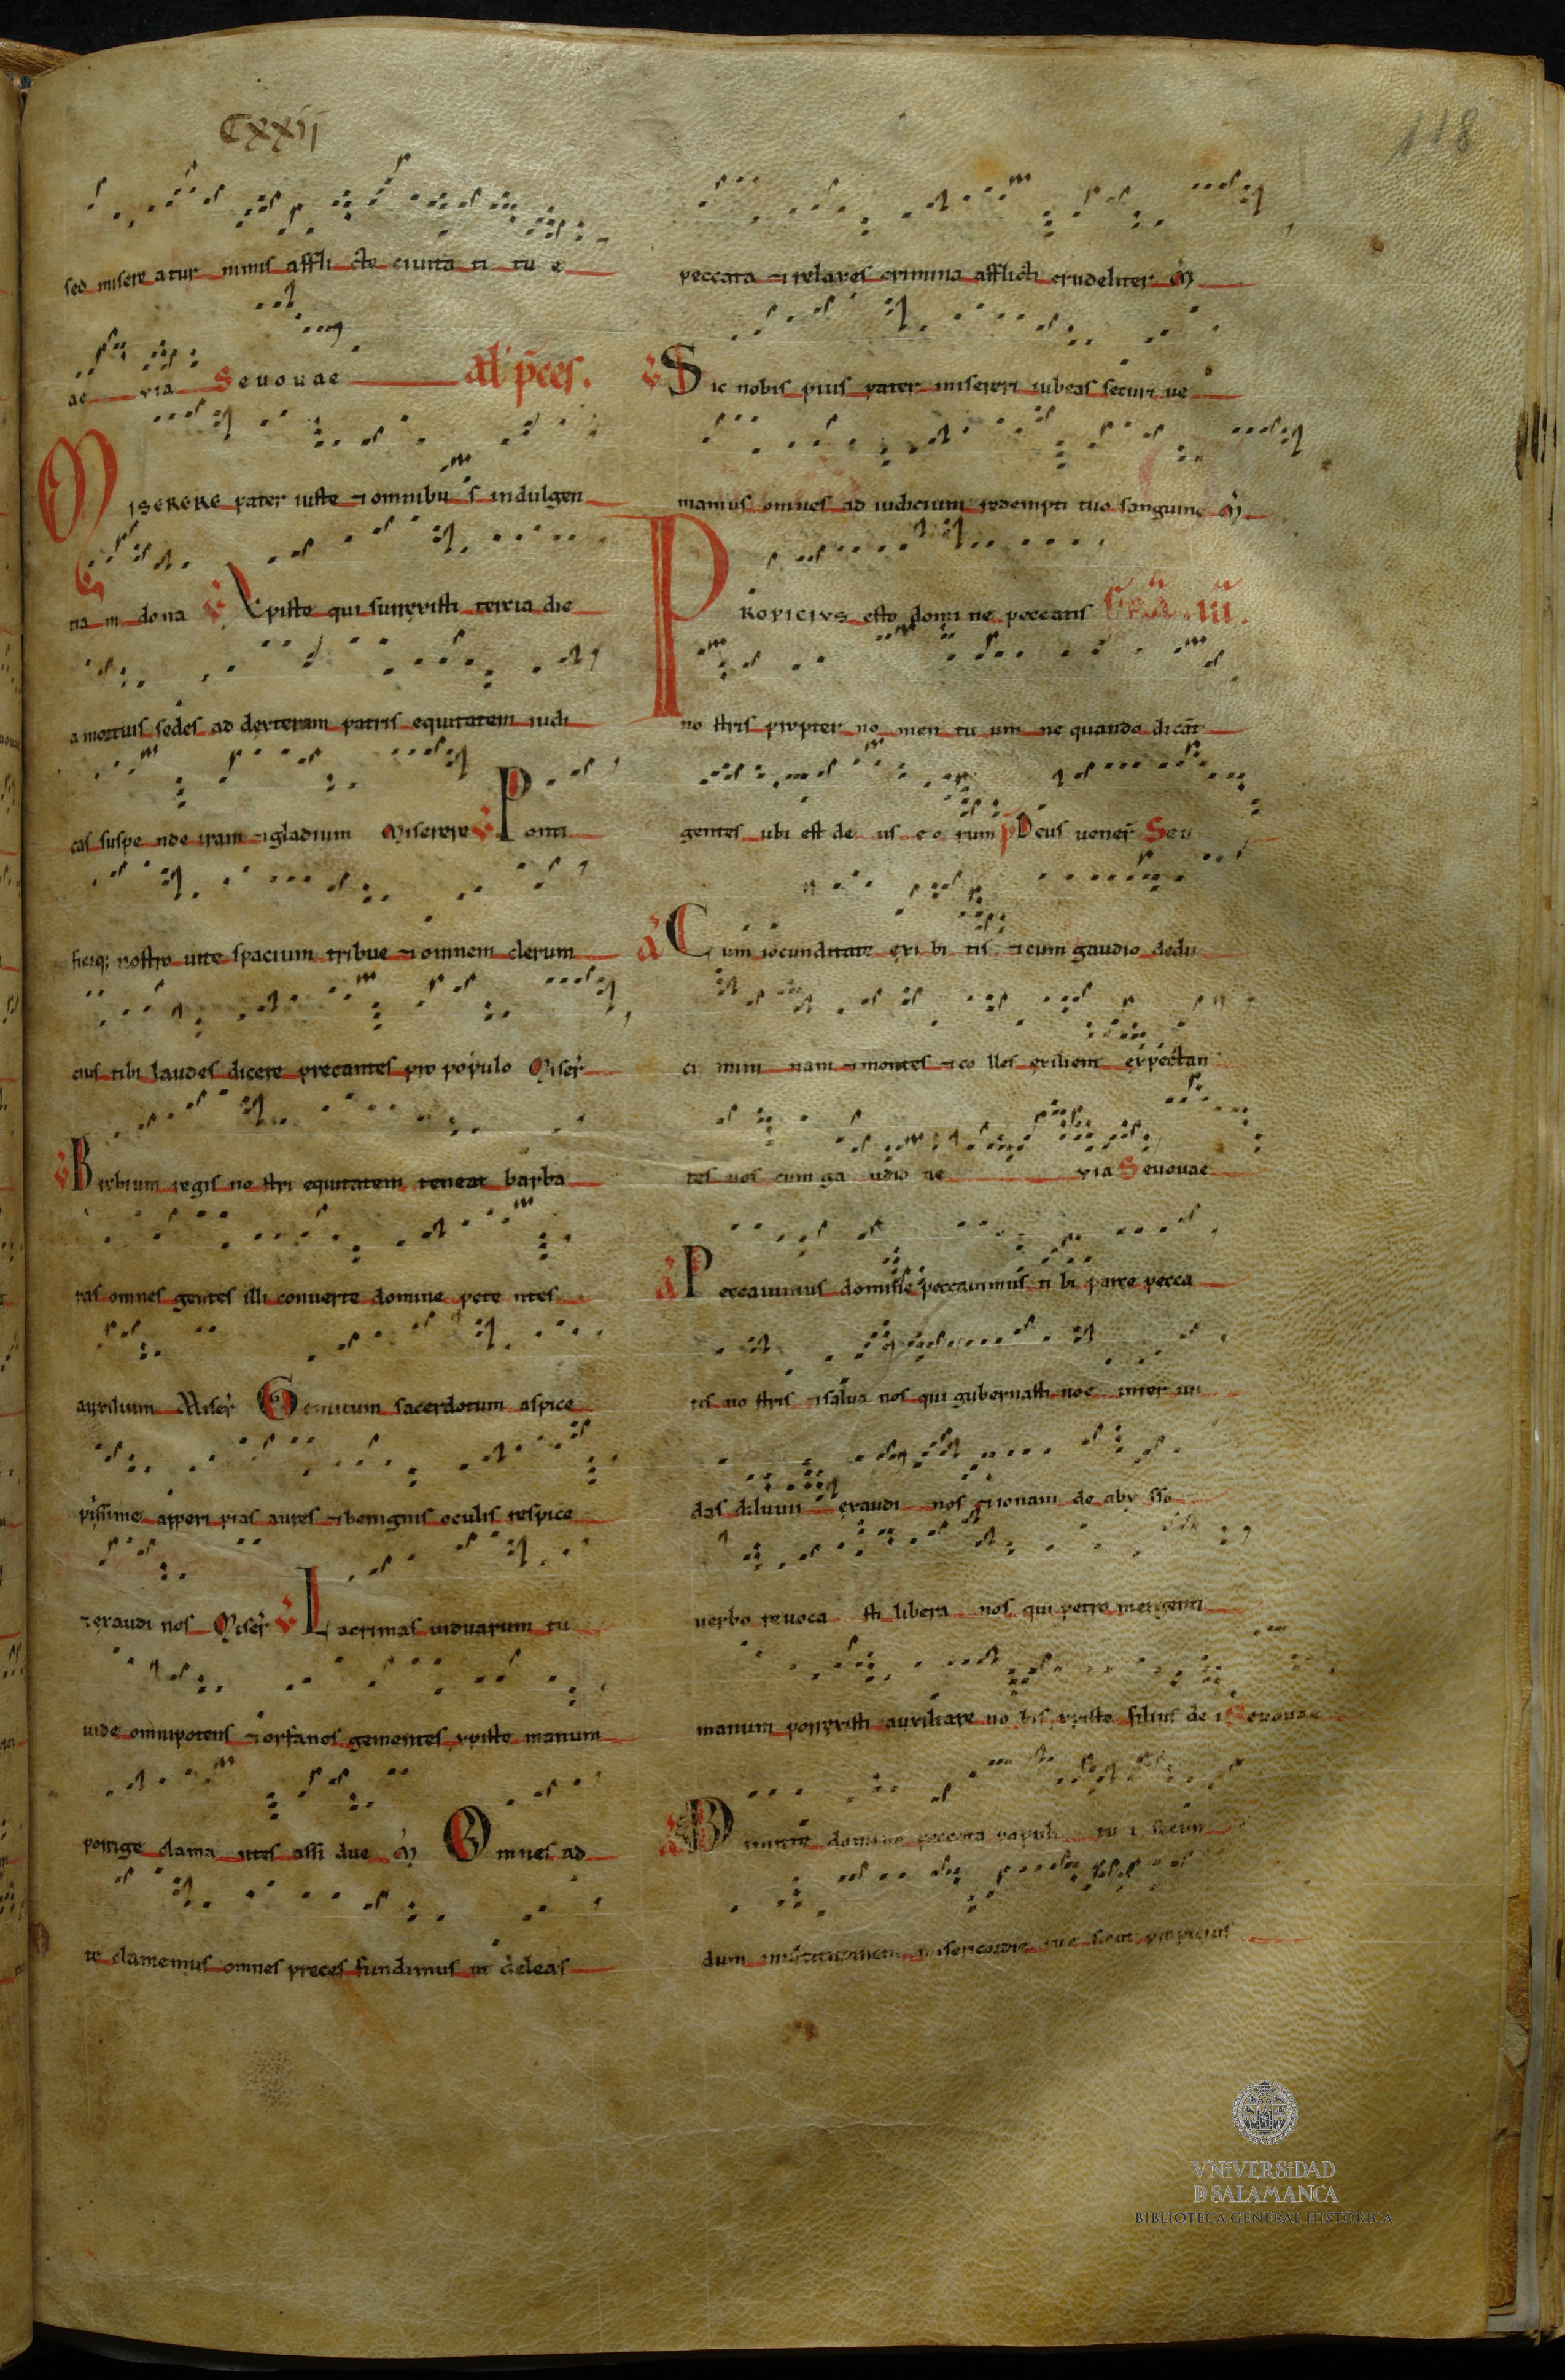 CXXII
118
sed misere atur nimis affli cte ciuita ti tu e
ae uia Seuouae al' p̄ces.
MISERERE pater iuste ⁊ omnibu s indulgen
tia m dona ℣ Xpiste qui surrexisti tercia die
a mortuis sedes ad dexteram patris equitatem iudi
cas suspe nde iram ⁊ gladium Miserere ℣ Ponti
ficiq; nostro uite spacium tribue ⁊ omnem clerum
eius tibi laudes dicere precantes pro populo Miser̄
tas omnes gentes illi conuerte domine pete ntes
auxilium Miser̄ Gemitum sacerdotum aspice
piissime apperi pias aures ⁊ benignis oculis respice
⁊ exaudi nos Miser̄ ℣ Lacrimas uiduarum tu
uide omnipotens ⁊ orfanos gementes xpiste manum
porrige clama ntes assi due M̄ Omnes ad
te clamemus omnes preces fundimus ut deleas
peccata ⁊ relaxes crimina afflicti crudeliter M̄
℣ Sic nobis pius pater misereri iubeas securi ue
niamus omnes ad iudicium redempti tuo sanguine M̄
PROPICIUS esto domi ne peccatis
no stris propter no men tu um ne quando dicāt
gentes ubi est de us e o rum p̄ Deus uener̄ Seu
a Cum iocunditate exi bi tis ⁊ cum gaudio dedu
ci mini nam ⁊ montes ⁊ co lles exilient expectan
tes uos cum ga udio ae uia Seuouae
a Peccauimus domine peccauimus ti bi parce pecca
tis no stris ⁊ salua nos qui gubernasti noe inter un
das diluuii exaudi nos ionam de aby sso
uerbo reuoca sti libera nos qui petro mergenti
manum porrexisti auxiliare no bis xpiste filius de i Seuouae
domine peccata populi tu i secun
dum misericordie tue
VNiVERSiDAD
D SALAMANCA
BIBLIOTECA GENERAL HISTÓRICA